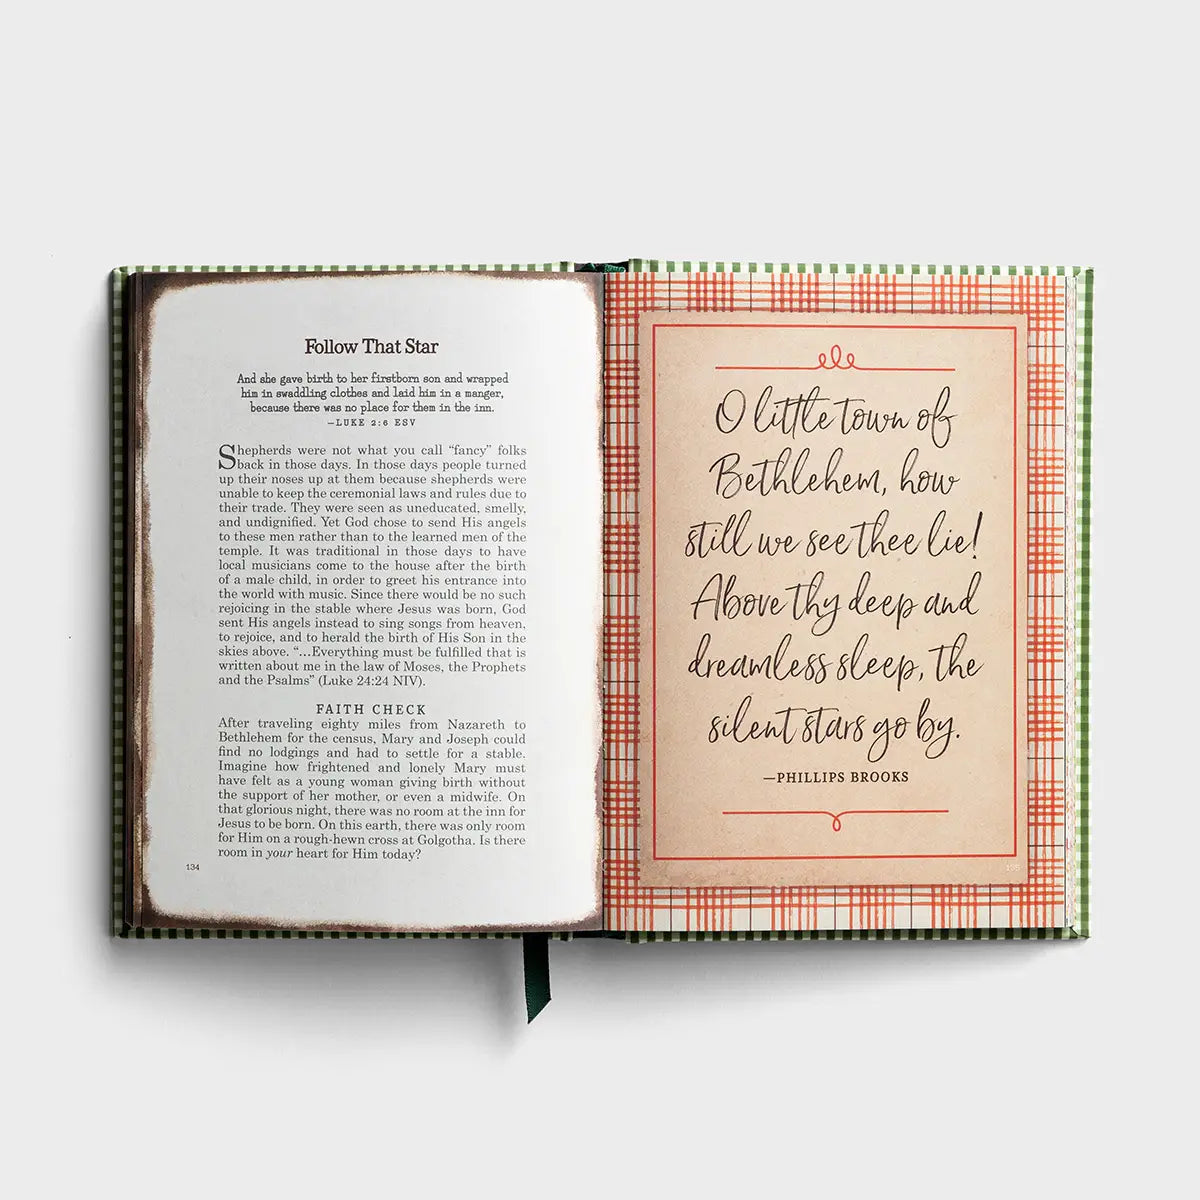 Follow That Star
And she gave birth to her firstborn son and wrapped
him in swaddling clothes and laid him in a manger,
because there was no place for them in the inn.
—LUKE 2:6 ESV
Shepherds were not what you call “fancy” folks
back in those days. In those days people turned
up their noses up at them because shepherds were
unable to keep the ceremonial laws and rules due to
their trade. They were seen as uneducated, smelly,
and undignified. Yet God chose to send His angels
to these men rather than to the learned men of the
temple. It was traditional in those days to have
local musicians come to the house after the birth
of a male child, in order to greet his entrance into
the world with music. Since there would be no such
rejoicing in the stable where Jesus was born, God
sent His angels instead to sing songs from heaven,
to rejoice, and to herald the birth of His Son in the
skies above. “...Everything must be fulfilled that is
written about me in the law of Moses, the Prophets
and the Psalms” (Luke 24:24 NIV).
FAITH CHECK
After traveling eighty miles from Nazareth to
Bethlehem for the census, Mary and Joseph could
find no lodgings and had to settle for a stable.
Imagine how frightened and lonely Mary must
have felt as a young woman giving birth without
the support of her mother, or even a midwife. On
that glorious night, there was no room at the inn for
Jesus to be born. On this earth, there was only room
for Him on a rough-hewn cross at Golgotha. Is there
room in your heart for Him today?
134
O little town of
Bethlehem, how
still we see thee lie!
Above thy deep and
dreamless sleep, the
silent stars go by.
—PHILLIPS BROOKS
135